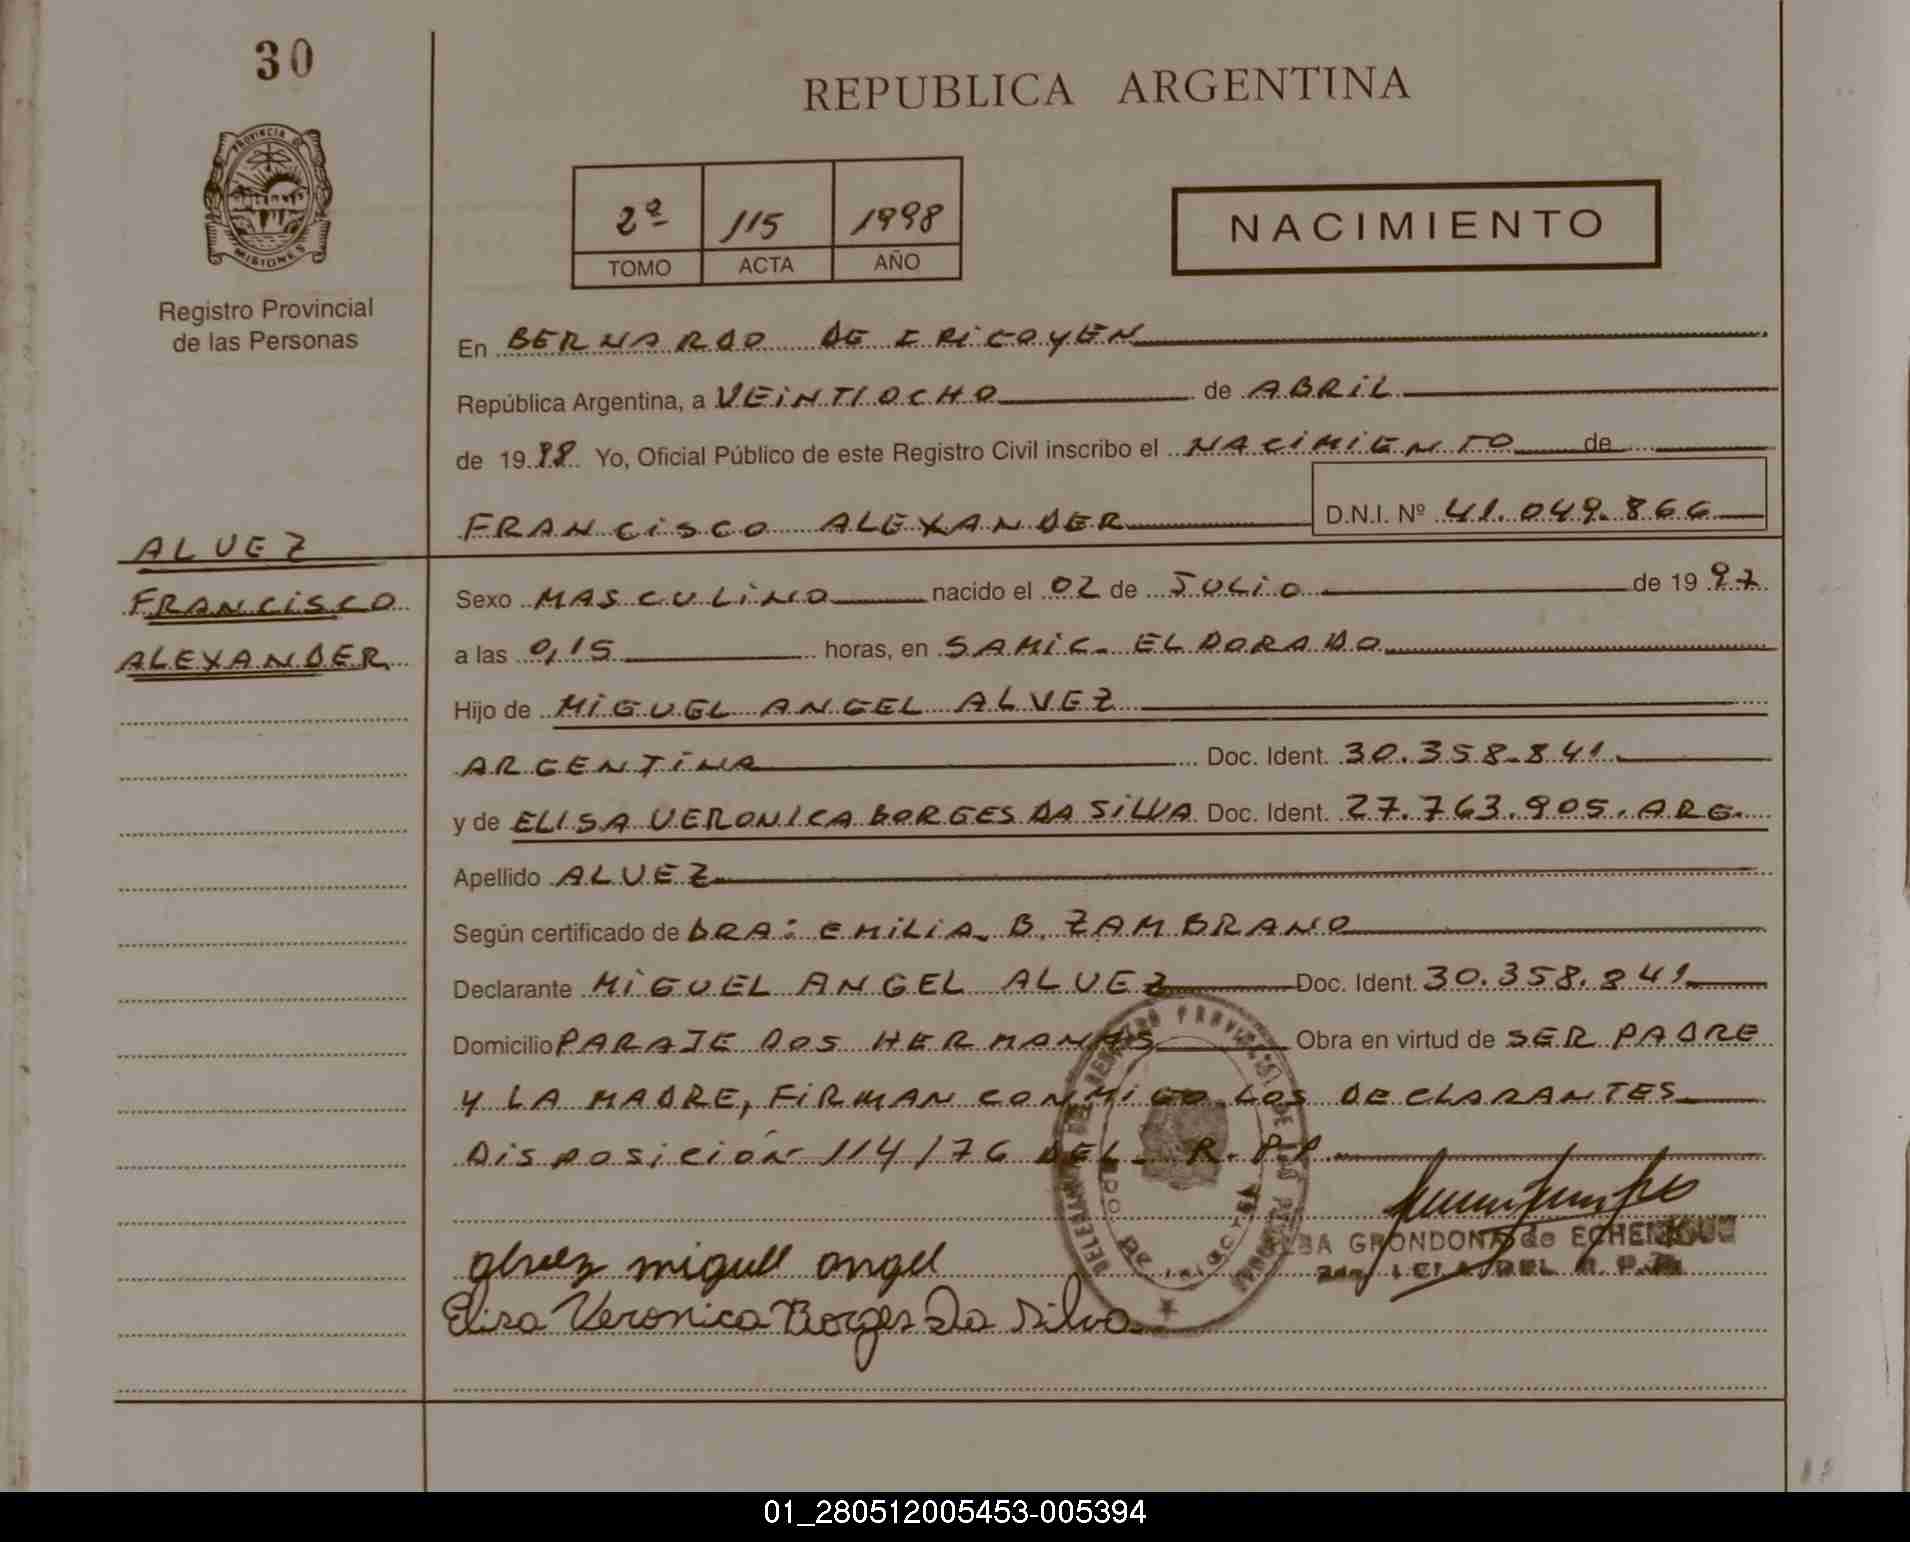 30
REPUBLICA ARGENTINA
PROVINCIA DE
MISIONES
Registro Provincial
de las Personas
2º 115 1998
TOMO ACTA AÑO
NACIMIENTO
En BERNARDO DE IRIGOYEN
República Argentina, a VEINTIOCHO de ABRIL
de 1998 Yo, Oficial Público de este Registro Civil inscribo el NACIMIENTO de
FRANCISCO ALEXANDER D.N.I. Nº 41.049.866
ALVEZ
FRANCISCO
ALEXANDER
Sexo MASCULINO nacido el 02 de JULIO de 1997
a las 0,15 horas, en SAMIC. ELDORADO
Hijo de MIGUEL ANGEL ALVEZ
ARGENTINA Doc. Ident. 30.358.841
y de ELISA VERONICA BORGES DA SILVA Doc. Ident. 27.763.905. ARG.
Apellido ALVEZ
Según certificado de DRA: EMILIA. B. ZAMBRANO
Declarante MIGUEL ANGEL ALVEZ Doc. Ident. 30.358.841
Domicilio PARAJE DOS HERMANAS Obra en virtud de SER PADRE
Y LA MADRE, FIRMAN CONMIGO LOS DECLARANTES
DISPOSICIÓN 114/76 DEL R.P.P.
GRONDONA de
alvez miguel angel
Elisa Veronica Borges Da Silva
01_280512005453-005394